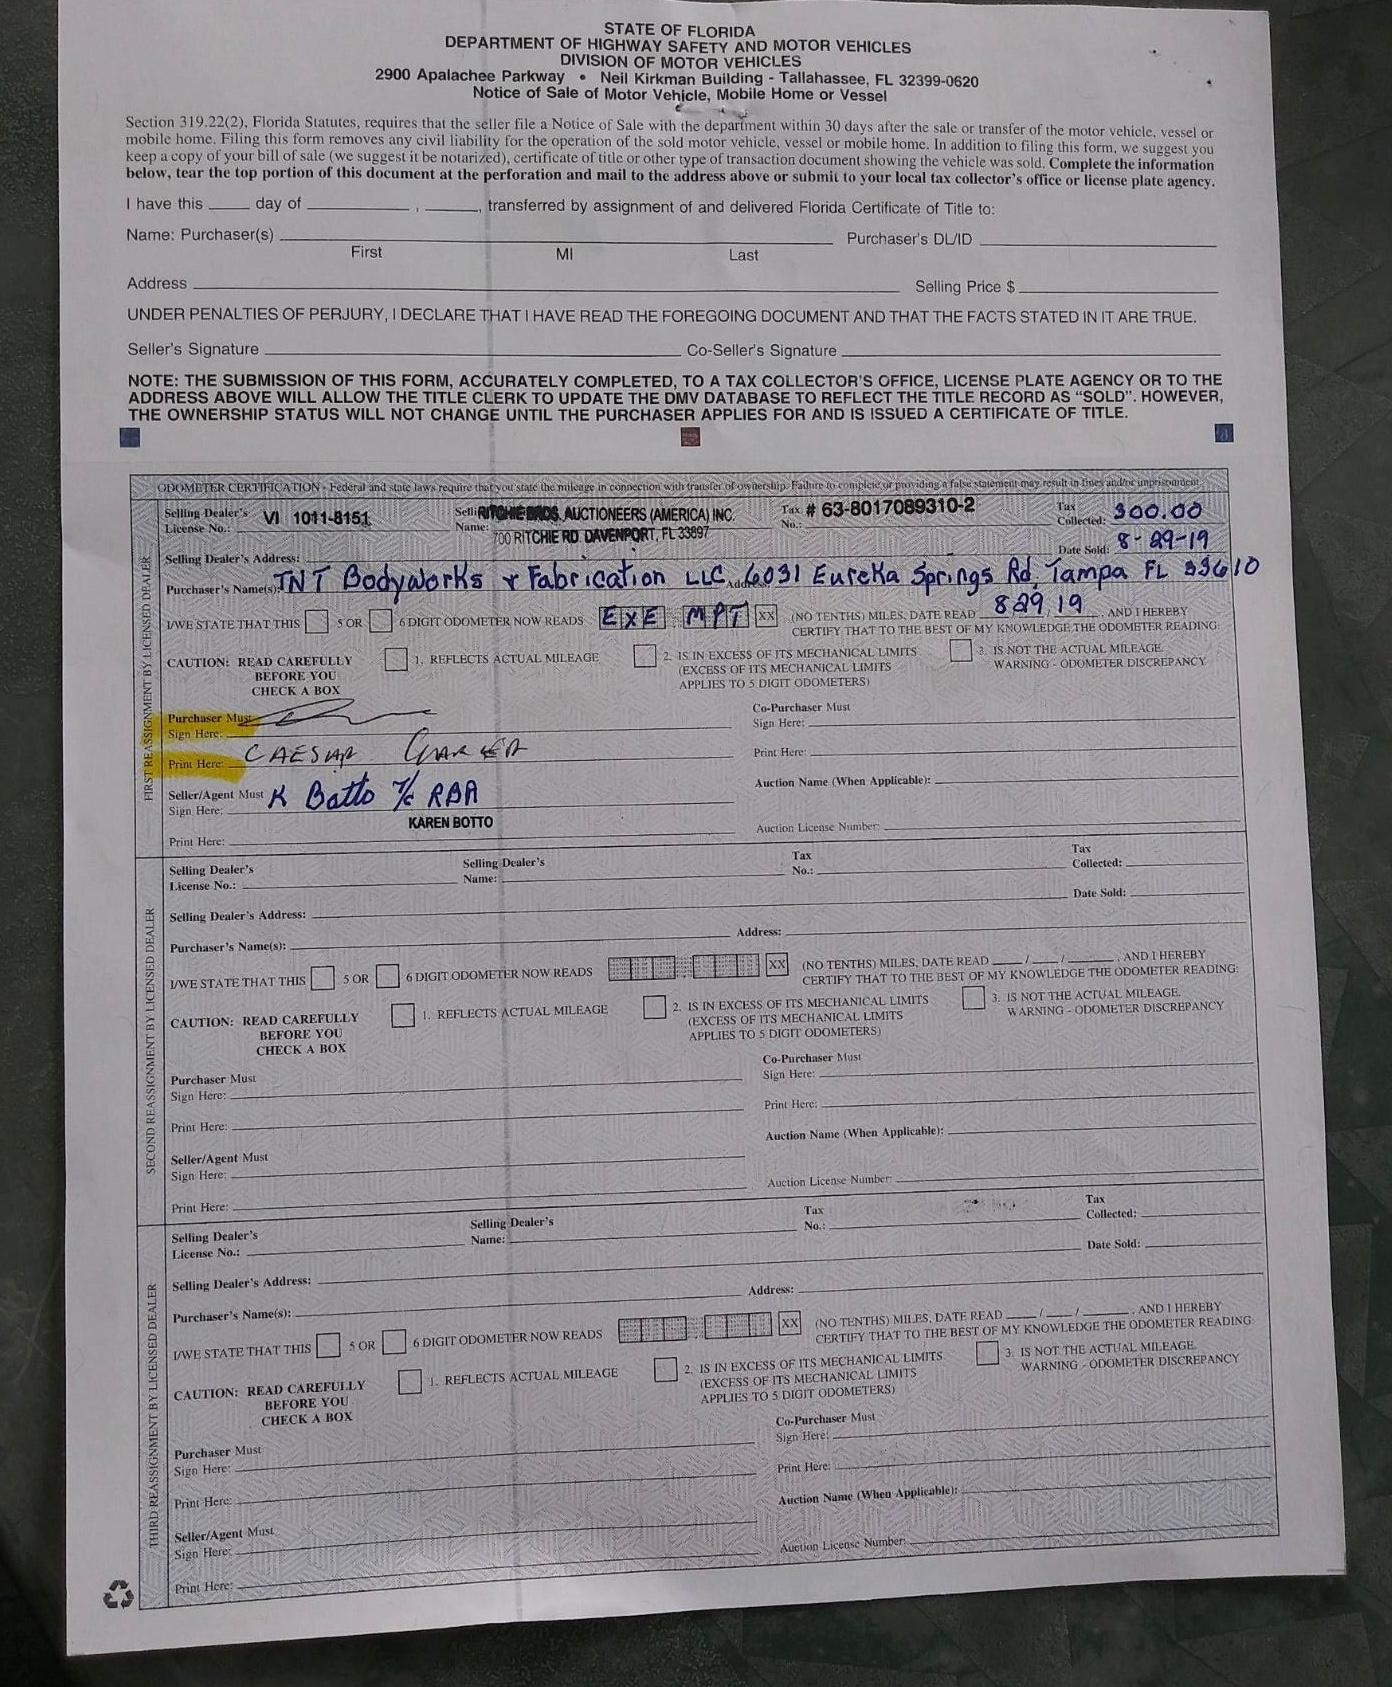 STATE OF FLORIDA
DEPARTMENT OF HIGHWAY SAFETY AND MOTOR VEHICLES
DIVISION OF MOTOR VEHICLES
2900 Apalachee Parkway • Neil Kirkman Building - Tallahassee, FL 32399-0620
Notice of Sale of Motor Vehicle, Mobile Home or Vessel
Section 319.22(2), Florida Statutes, requires that the seller file a Notice of Sale with the department within 30 days after the sale or transfer of the motor vehicle, vessel or
mobile home. Filing this form removes any civil liability for the operation of the sold motor vehicle, vessel or mobile home. In addition to filing this form, we suggest you
keep a copy of your bill of sale (we suggest it be notarized), certificate of title or other type of transaction document showing the vehicle was sold. Complete the information
below, tear the top portion of this document at the perforation and mail to the address above or submit to your local tax collector's office or license plate agency.
I have this ____ day of ________ , ____, transferred by assignment of and delivered Florida Certificate of Title to:
Name: Purchaser(s) ________ Purchaser's DL/ID ________
First MI Last
Address ________ Selling Price $ ________
UNDER PENALTIES OF PERJURY, I DECLARE THAT I HAVE READ THE FOREGOING DOCUMENT AND THAT THE FACTS STATED IN IT ARE TRUE.
Seller's Signature ________ Co-Seller's Signature ________
NOTE: THE SUBMISSION OF THIS FORM, ACCURATELY COMPLETED, TO A TAX COLLECTOR'S OFFICE, LICENSE PLATE AGENCY OR TO THE
ADDRESS ABOVE WILL ALLOW THE TITLE CLERK TO UPDATE THE DMV DATABASE TO REFLECT THE TITLE RECORD AS "SOLD". HOWEVER,
THE OWNERSHIP STATUS WILL NOT CHANGE UNTIL THE PURCHASER APPLIES FOR AND IS ISSUED A CERTIFICATE OF TITLE.
ODOMETER CERTIFICATION - Federal and state laws require that you state the mileage in connection with transfer of ownership. Failure to complete or providing a false statement may result in fines and/or imprisonment.
FIRST REASSIGNMENT BY LICENSED DEALER
Selling Dealer's License No.: VI 1011-8151 Name: RITCHIE BROS. AUCTIONEERS (AMERICA) INC. Tax No.: # 63-8017089310-2 Tax Collected: 300.00
700 RITCHIE RD. DAVENPORT, FL 33897
Selling Dealer's Address: Date Sold: 8-29-19
Purchaser's Name(s): TNT Bodyworks & Fabrication LLC Address: 6031 Eureka Springs Rd, Tampa FL 33610
I/WE STATE THAT THIS 5 OR 6 DIGIT ODOMETER NOW READS EXE MPT XX (NO TENTHS) MILES, DATE READ 8 29 19, AND I HEREBY
CERTIFY THAT TO THE BEST OF MY KNOWLEDGE THE ODOMETER READING:
CAUTION: READ CAREFULLY BEFORE YOU CHECK A BOX
1. REFLECTS ACTUAL MILEAGE
2. IS IN EXCESS OF ITS MECHANICAL LIMITS
(EXCESS OF ITS MECHANICAL LIMITS
APPLIES TO 5 DIGIT ODOMETERS)
3. IS NOT THE ACTUAL MILEAGE.
WARNING - ODOMETER DISCREPANCY
Purchaser Must Sign Here: Co-Purchaser Must Sign Here:
Print Here: CAESAR Print Here:
Seller/Agent Must Sign Here: K Botto RBA Auction Name (When Applicable):
KAREN BOTTO
Print Here: Auction License Number:
SECOND REASSIGNMENT BY LICENSED DEALER
Selling Dealer's License No.: Selling Dealer's Name: Tax No.: Tax Collected:
Date Sold:
Selling Dealer's Address:
Purchaser's Name(s): Address:
I/WE STATE THAT THIS 5 OR 6 DIGIT ODOMETER NOW READS XX (NO TENTHS) MILES, DATE READ ___/___/____, AND I HEREBY
CERTIFY THAT TO THE BEST OF MY KNOWLEDGE THE ODOMETER READING:
CAUTION: READ CAREFULLY BEFORE YOU CHECK A BOX
1. REFLECTS ACTUAL MILEAGE
2. IS IN EXCESS OF ITS MECHANICAL LIMITS
(EXCESS OF ITS MECHANICAL LIMITS
APPLIES TO 5 DIGIT ODOMETERS)
3. IS NOT THE ACTUAL MILEAGE.
WARNING - ODOMETER DISCREPANCY
Purchaser Must Sign Here: Co-Purchaser Must Sign Here:
Print Here: Print Here:
Seller/Agent Must Sign Here: Auction Name (When Applicable):
Print Here: Auction License Number:
THIRD REASSIGNMENT BY LICENSED DEALER
Selling Dealer's License No.: Selling Dealer's Name: Tax No.: Tax Collected:
Date Sold:
Selling Dealer's Address:
Purchaser's Name(s): Address:
I/WE STATE THAT THIS 5 OR 6 DIGIT ODOMETER NOW READS XX (NO TENTHS) MILES, DATE READ ___/___/____, AND I HEREBY
CERTIFY THAT TO THE BEST OF MY KNOWLEDGE THE ODOMETER READING:
CAUTION: READ CAREFULLY BEFORE YOU CHECK A BOX
1. REFLECTS ACTUAL MILEAGE
2. IS IN EXCESS OF ITS MECHANICAL LIMITS
(EXCESS OF ITS MECHANICAL LIMITS
APPLIES TO 5 DIGIT ODOMETERS)
3. IS NOT THE ACTUAL MILEAGE.
WARNING - ODOMETER DISCREPANCY
Purchaser Must Sign Here: Co-Purchaser Must Sign Here:
Print Here: Print Here:
Seller/Agent Must Sign Here: Auction Name (When Applicable):
Print Here: Auction License Number: